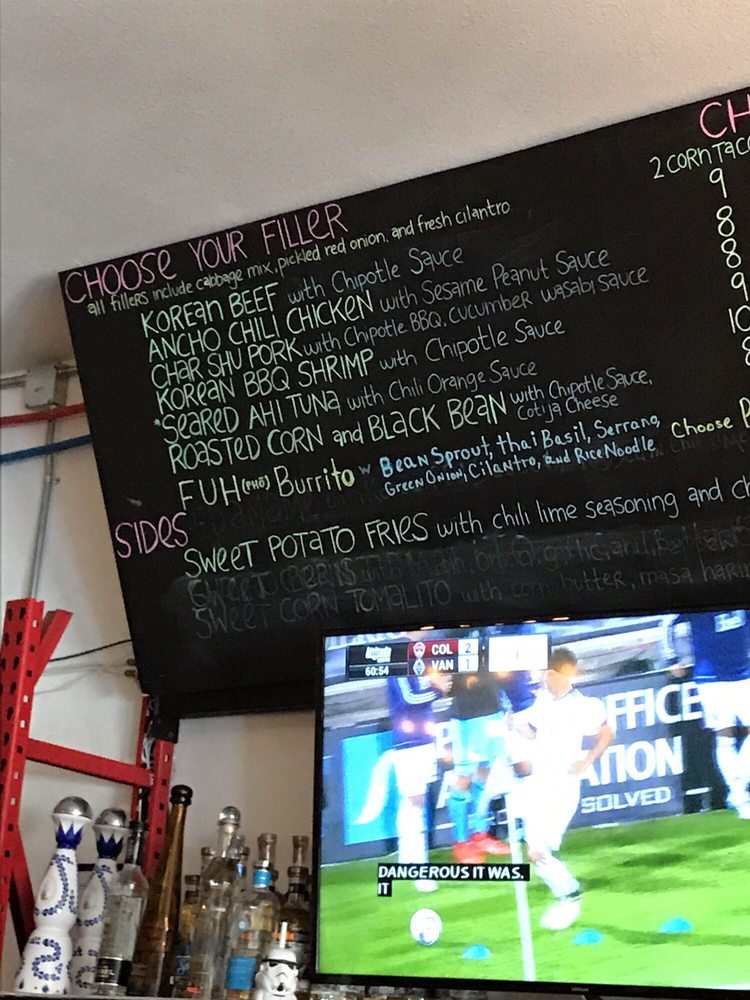 CHOOSE YOUR FILLER
all fillers include cabbage mix, pickled red onion, and fresh cilantro
KOREAN BEEF with Chipotle Sauce
ANCHO CHILI CHICKEN with Sesame Peanut Sauce
CHAR SHU PORK with Chipotle BBQ, cucumber wasabi sauce
KOREAN BBQ SHRIMP with Chipotle Sauce
*SEARED AHI TUNA with Chili Orange Sauce
ROASTED CORN and BLACK BEAN with Chipotle Sauce,
Cotija Cheese
FUH (PHO) Burrito w Bean Sprout, Thai Basil, Serrano,
Green Onion, Cilantro, and Rice Noodle
Choose
SIDES
SWEET POTATO FRIES with chili lime seasoning and
SWEET CORN TOMALITO with corn butter, masa
CH
2 CORN TACO
9
8
8
9
10
8
Altitude
60:54
COL 2
VAN 1
OFFICE
SOLVED
DANGEROUS IT WAS.
IT